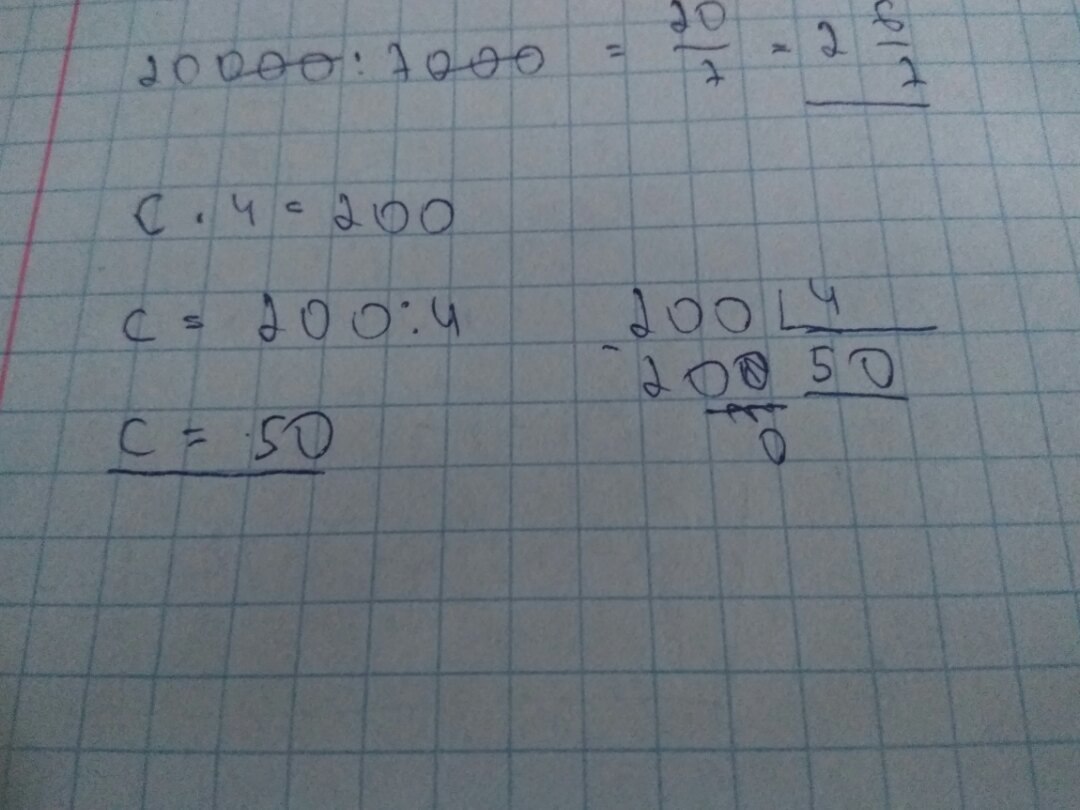 20000:7000 = 20/7 = 2 6/7
c · 4 = 200
c = 200:4
200 | 4
- 200 50
0
c = 50